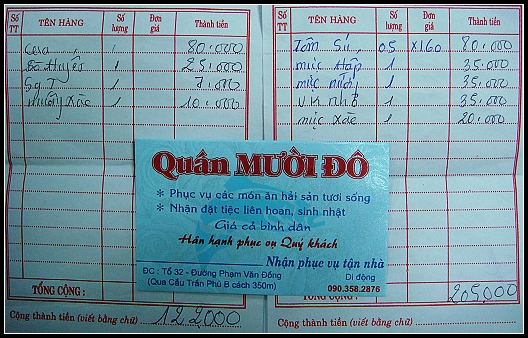 Số TT TÊN HÀNG Số lượng Đơn giá Thành tiền
Cera 1 80.000
1 25.000
1 7.000
xào 1 10.000
TỔNG CỘNG :
Cộng thành tiền (viết bằng chữ) 122000
Số TT TÊN HÀNG Số lượng Đơn giá Thành tiền
Tôm Sú 05 x160 80.000
mực Hấp 1 35.000
mực nướng 1 35.000
1 35.000
mực xào 1 20.000
205000
Cộng thành tiền (viết bằng chữ)
Quán MƯỜI ĐÔ
* Phục vụ các món ăn hải sản tươi sống
* Nhận đặt tiệc liên hoan, sinh nhật
Giá cả bình dân
Hân hạnh phục vụ Quý khách
Nhận phục vụ tận nhà
ĐC : Tổ 32 - Đường Phạm Văn Đồng
(Qua Cầu Trần Phú B cách 350m)
Di động
090.358.2876